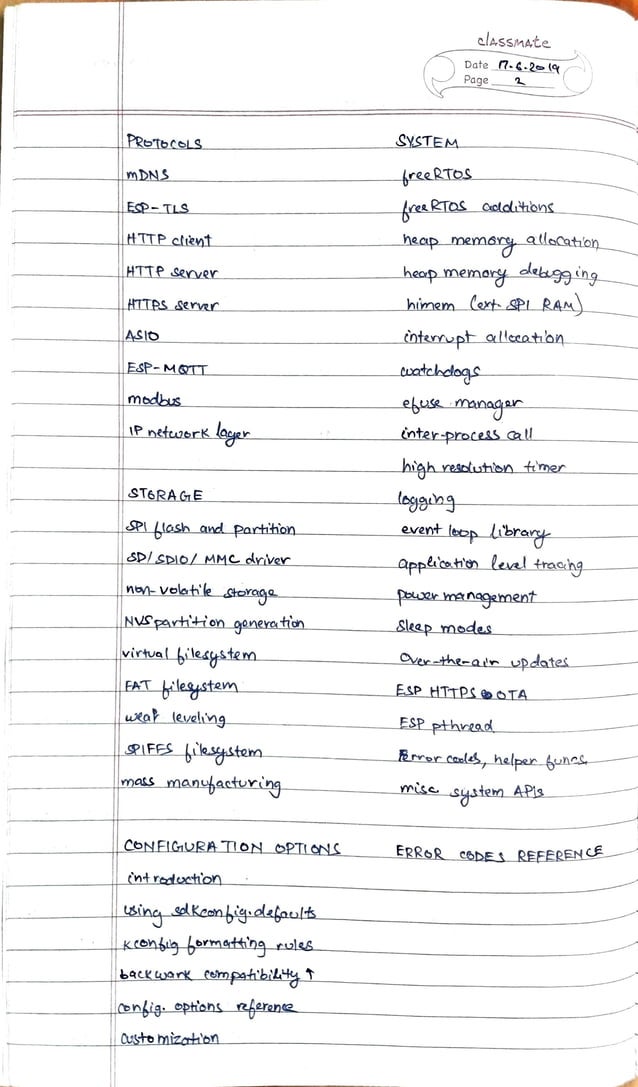 classmate
Date 17.6.2019
Page 2
PROTOCOLS
mDNS
ESP-TLS
HTTP client
HTTP server
HTTPS server
ASIO
ESP-MQTT
modbus
IP network layer
STORAGE
SPI flash and partition
SD/SDIO/MMC driver
non-volatile storage
NVS partition generation
virtual filesystem
FAT filesystem
wear leveling
SPIFFS filesystem
mass manufacturing
CONFIGURATION OPTIONS
introduction
using sdkconfig.defaults
kconfig formatting rules
backwork compatibility ↑
config. options reference
customization
SYSTEM
freeRTOS
freeRTOS additions
heap memory allocation
heap memory debugging
himem (ext. SPI RAM)
interrupt allocation
watchdogs
efuse manager
inter-process call
high resolution timer
logging
event loop library
application level tracing
power management
sleep modes
over-the-air updates
ESP HTTPS OTA
ESP pthread
Error codes, helper funcs
misc system APIs
ERROR CODES REFERENCE